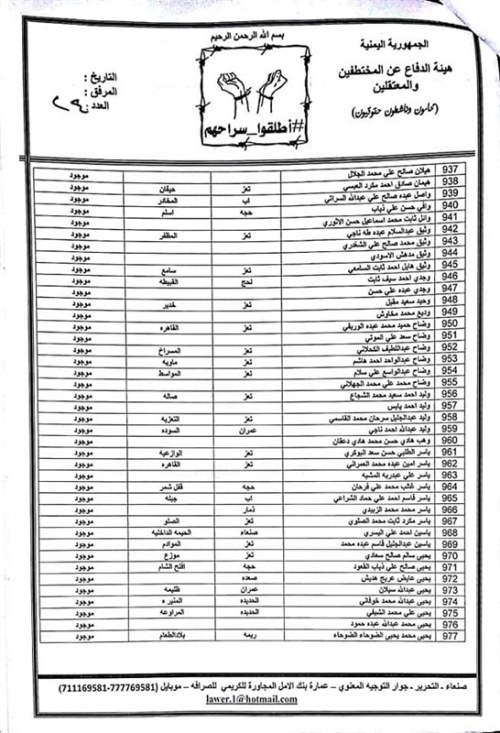 بسم الله الرحمن الرحيم
الجمهورية اليمنية
هيئة الدفاع عن المختطفين
والمعتقلين
(محامون وناشطون حقوقيون)
التاريخ :
المرفق :
العدد :
#أطلقوا_سراحهم
937 هيلان صالح علي محمد الجلال موجود
938 هيمان صادق احمد مكرد العبسي تعز حيفان موجود
939 واصل عبده صالح علي عبدالله السراني اب المخادر موجود
940 وافي حسن علي ذياب حجه اسلم موجود
941 وائل ثابت محمد اسماعيل حسن الاثوري موجود
942 وثيق عبدالسلام عبده طه ناجي تعز المظفر موجود
943 وثيق محمد صالح علي الشغدري موجود
944 وثيق مدهش الاسودي موجود
945 وثيق هايل احمد ثابت السامعي تعز سامع موجود
946 وجدي احمد سيف ثابت لحج القبيطه موجود
947 وجدي عبده علي حسن موجود
948 وحيد سعيد مقبل تعز خدير موجود
949 وديع محمد مخاوش موجود
950 وضاح حميد محمد عبده الوريقي تعز القاهره موجود
951 وضاح سعد علي الموتي موجود
952 وضاح عبداللطيف الكحلاني تعز المسراخ موجود
953 وضاح عبدالواحد احمد هاشم تعز ماويه موجود
954 وضاح عبدالواسع علي سلام تعز المواسط موجود
955 وضاح محمد علي محمد الجهلاني موجود
956 وليد احمد سعيد محمد الشجاع تعز صاله موجود
957 وليد احمد يابس موجود
958 وليد عبدالجليل سرحان محمد القاسمي تعز التعزيه موجود
959 وليد عبدالله احمد ناجي عمران السوده موجود
960 وهب هادي حسن محمد هادي دعقان موجود
961 ياسر الطلبي حسن سعد البوكري تعز الوازعيه موجود
962 ياسر امين عبده محمد العمراني تعز القاهره موجود
963 ياسر علي عبدربه المشبه موجود
964 ياسر غالب محمد علي فرحان حجه قفل شمر موجود
965 ياسر قاسم احمد علي حماد الشراعي اب جبله موجود
966 ياسر محمد محمد الزبيدي ذمار موجود
967 ياسر مكرد ثابت محمد الصلوي تعز الصلو موجود
968 ياسين احمد علي اليسري صنعاء الحيمه الداخليه موجود
969 ياسين عبدالجليل قاسم عبده محمد تعز الموادم موجود
970 يحيى سالم صالح سعادي تعز موزع موجود
971 يحيى صالح علي ذياب القعود حجه افلح الشام موجود
972 يحيى عايض عريج هديش صعده موجود
973 يحيى عبدالله سيلان عمران ظليمه موجود
974 يحيى عبدالله محمد خوفاني الحديده المنيره موجود
975 يحيى علي محمد الشيفي الحديده المراوعه موجود
976 يحيى محمد عبدالله عبده حمود موجود
977 يحيى محمد يحيى الضوحاء الضوحاء ريمه بلادالطعام موجود
صنعاء – التحرير – جوار التوجيه المعنوي – عمارة بنك الامل المجاورة للكريمي للصرافه – موبايل (777769581-711169581)
lawer.1@hotmail.com